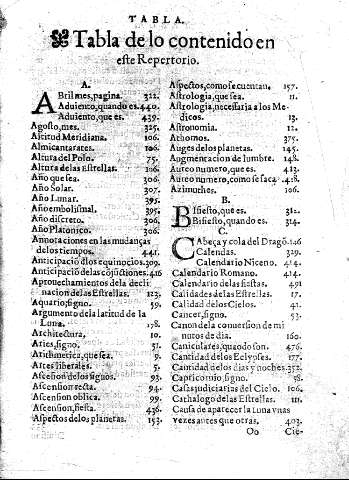 TABLA.
Tabla de lo contenido en
este Repertorio.
A.
ABril mes, pagina. 322.
Aduiento, quando es. 440.
Aduiento, que es. 439.
Agosto, mes. 325.
Altitud Meridiana. 106.
Almicantarates. 106.
Altura del Polo. 75.
Altura de las Estrellas. 106.
Año que sea. 306.
Año Solar. 307.
Año Lunar. 395.
Año embolismal. 395.
Año discreto. 306.
Año Platonico. 306.
Annotaciones en las mudanças
de los tiempos. 441.
Anticipació d los equinocios. 309.
Anticipació de las cójuctiones. 416
Aprouechamientos de la decli
nacion de las Estrellas. 123.
Aquario signo. 59.
Argumento de la latitud de la
Luna. 178.
Architectura, 10.
Aries, signo. 51.
Arithmetica, que sea. 9.
Artes liberales. 5.
Ascension de los signos. 93.
Ascension recta. 94.
Ascension oblica. 99.
Ascension, fiesta. 436.
Aspectos de los planetas. 153.
Aspectos, como se cuentan. 157.
Astrologia, que sea. 11.
Astrologia, necessaria a los Me
dicos. 13.
Astronomia. 12.
Athomos. 375.
Auges de los planetas. 145.
Augmentacion de lumbre. 148.
Aureo numero, que es. 413.
Aureo numero, como se saca. 418.
Azimuthes. 106.
B.
BIsiesto, que es. 312.
Bisiesto, quando es. 314.
C.
CAbeça y cola del Dragó. 126
Calendas. 329.
Calendario Niceno. 414.
Calendario Romano. 414.
Calendario de las fiestas. 491
Calidades de las Estrellas. 17.
Calidad de los Cielos. 41.
Cancer, signo. 53.
Canon de la conuersion de mi
nutos de dia. 160.
Caniculares, quando son. 476.
Cantidad de los Eclypses. 177.
Cantidad de los dias y noches. 352.
Capricornio, signo. 58.
Casas judiciarias del Cielo. 106.
Cathalogo de las Estrellas. 111.
Causa de aparecer la Luna vnas
vezes antes que otras. 403.
Oo Cie-